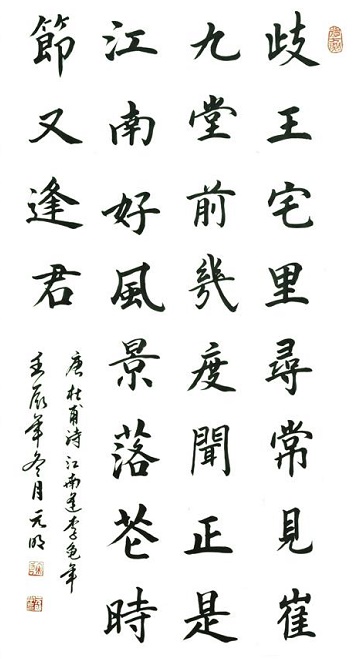 歧王宅里尋常見崔
九堂前幾度聞正是
江南好風景落花時
節又逢君
唐杜甫詩江南逢李龟年
壬辰年冬月元明